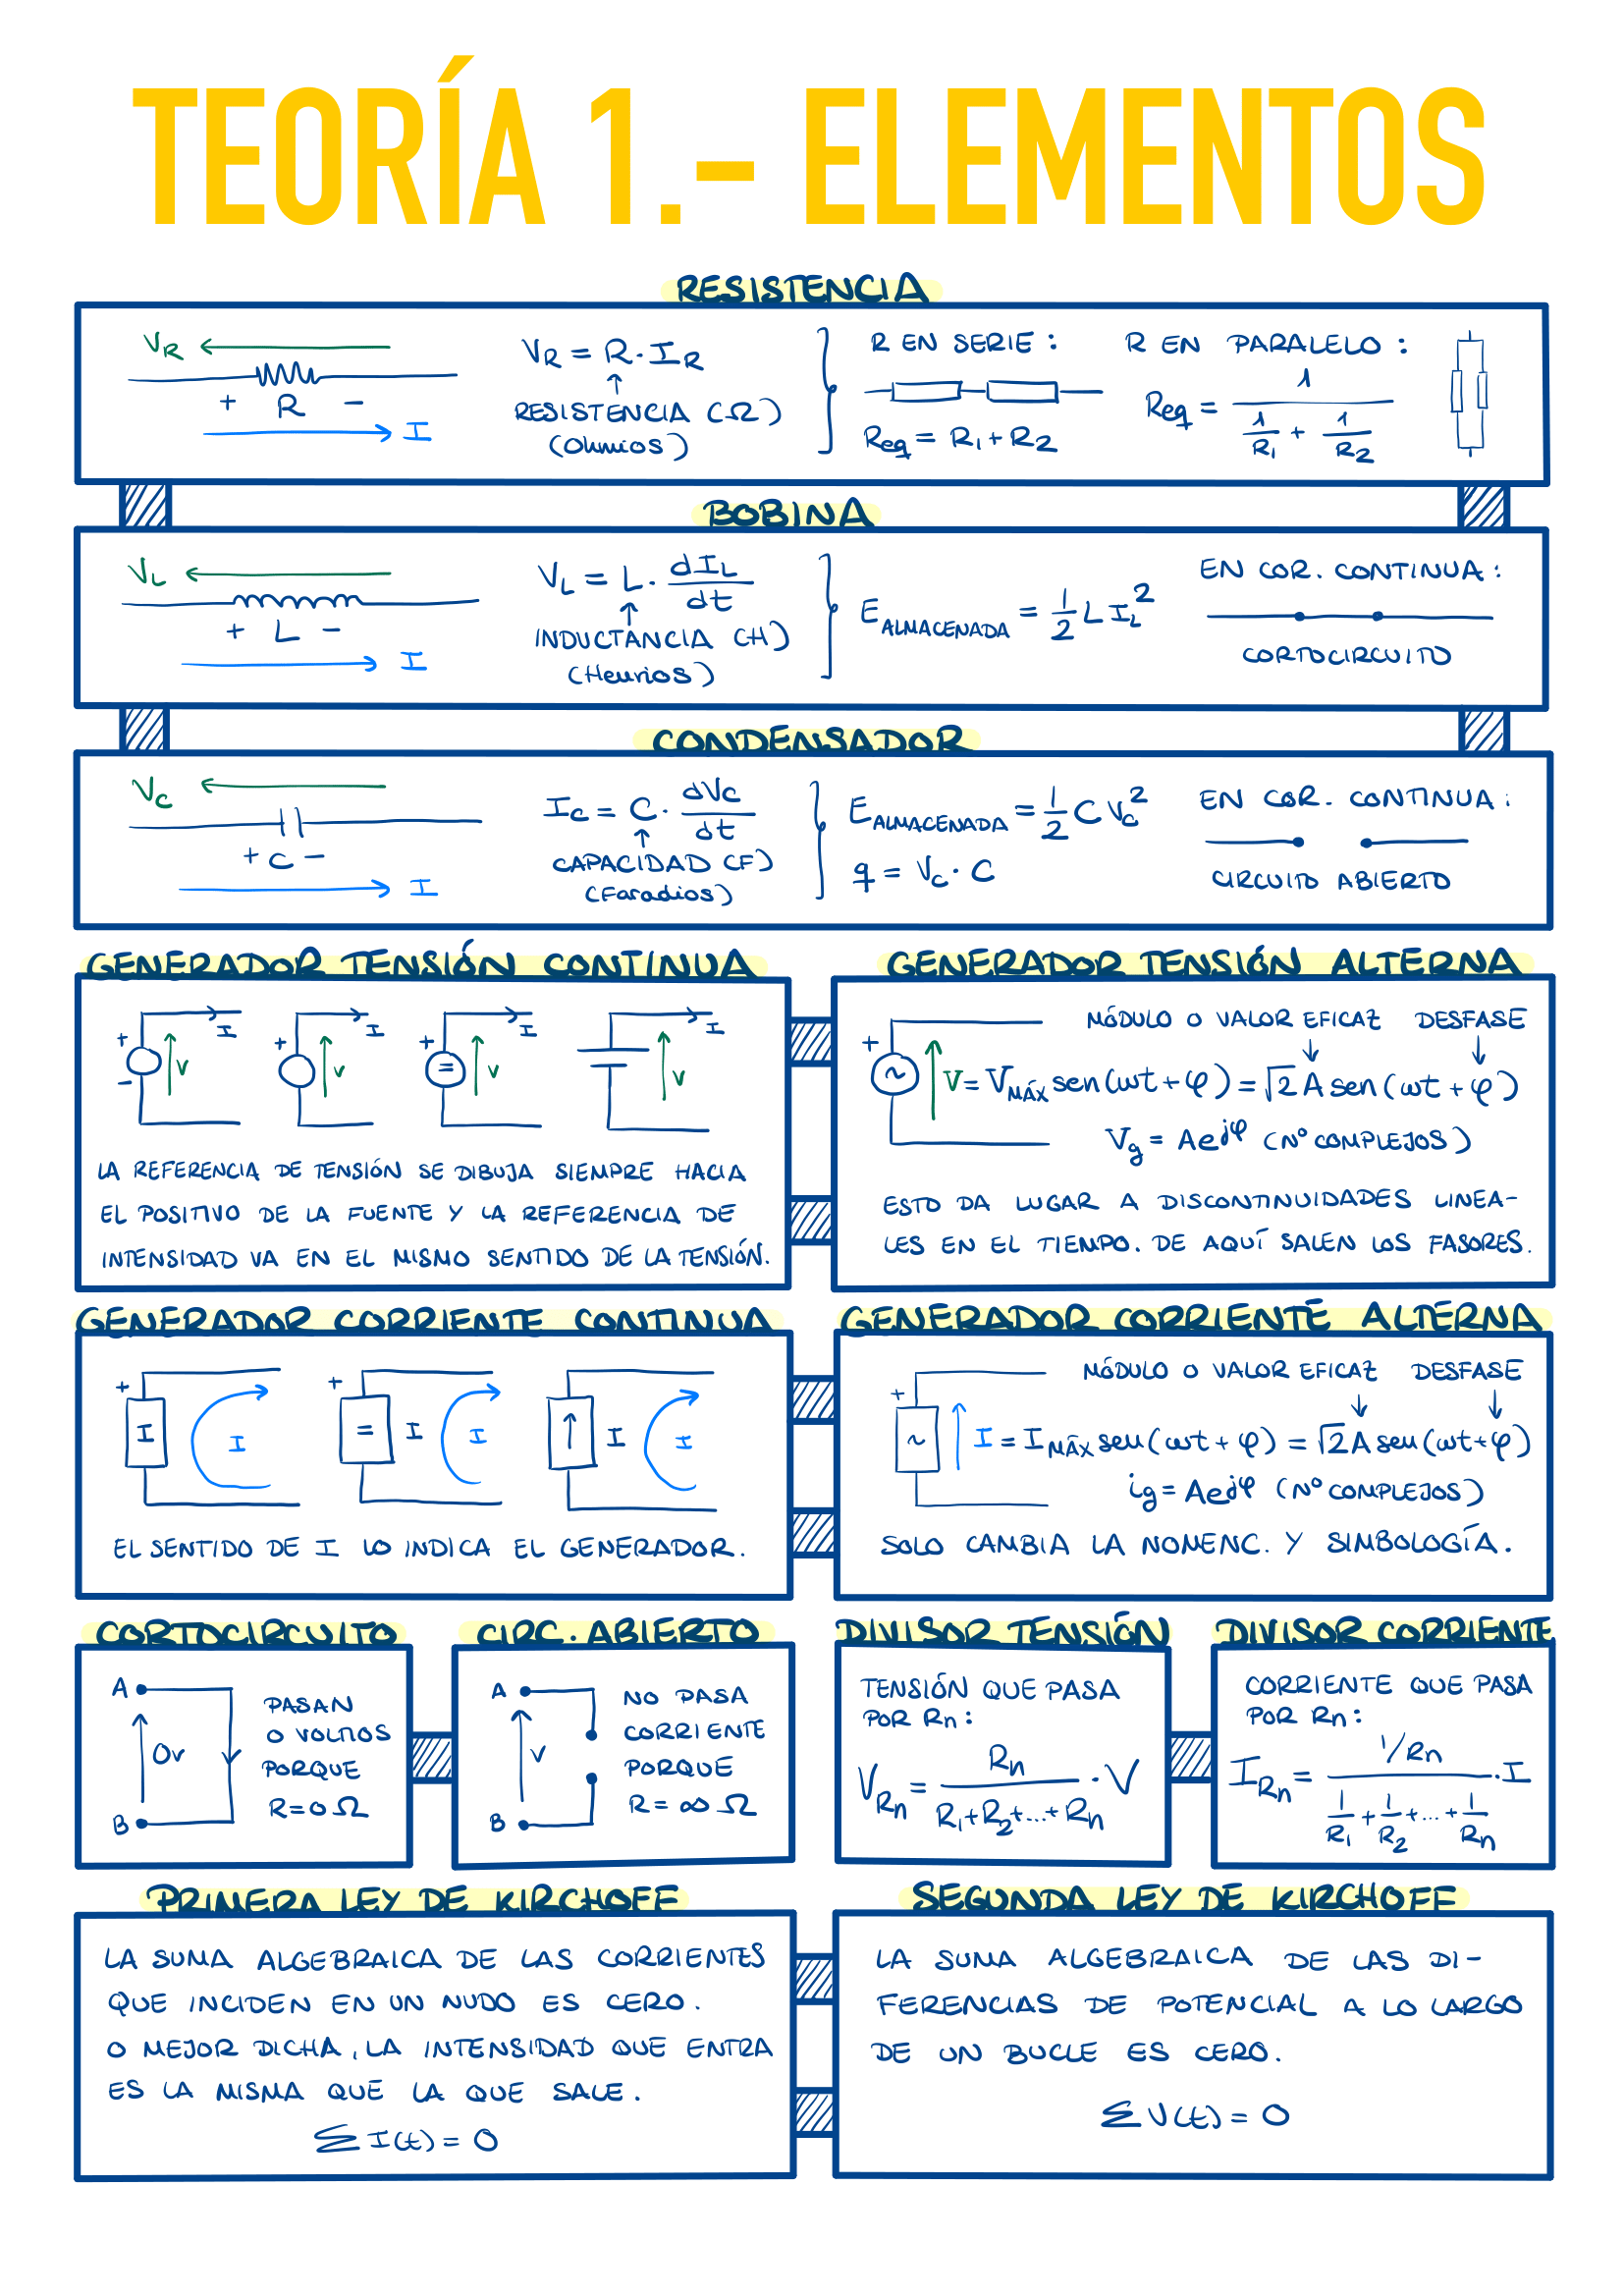 TEORÍA 1.- ELEMENTOS
RESISTENCIA
V_R
+ R -
I
V_R = R · I_R
↑
RESISTENCIA (Ω)
(Ohmios)
R EN SERIE:
Req = R₁ + R₂
R EN PARALELO:
Req = 1 / (1/R₁ + 1/R₂)
BOBINA
V_L
+ L -
I
V_L = L · dI_L/dt
↑
INDUCTANCIA (H)
(Henrios)
E_ALMACENADA = 1/2 L I_L²
EN COR. CONTINUA:
CORTOCIRCUITO
CONDENSADOR
V_C
+ C -
I
I_C = C · dV_C/dt
↑
CAPACIDAD (F)
(Faradios)
E_ALMACENADA = 1/2 C V_C²
q = V_C · C
EN COR. CONTINUA:
CIRCUITO ABIERTO
GENERADOR TENSIÓN CONTINUA
+ - V I
+ V I
+ = V I
V I
LA REFERENCIA DE TENSIÓN SE DIBUJA SIEMPRE HACIA
EL POSITIVO DE LA FUENTE Y LA REFERENCIA DE
INTENSIDAD VA EN EL MISMO SENTIDO DE LA TENSIÓN.
GENERADOR TENSIÓN ALTERNA
MÓDULO O VALOR EFICAZ DESFASE
+ ~ V = V_MÁX sen(ωt + φ) = √2 A sen(ωt + φ)
V_g = Ae^jφ (Nº COMPLEJOS)
ESTO DA LUGAR A DISCONTINUIDADES LINEA-
LES EN EL TIEMPO. DE AQUÍ SALEN LOS FASORES.
GENERADOR CORRIENTE CONTINUA
+ I I
+ = I I
↑ I I
EL SENTIDO DE I LO INDICA EL GENERADOR.
GENERADOR CORRIENTE ALTERNA
MÓDULO O VALOR EFICAZ DESFASE
+ ~ I = I_MÁX sen(ωt + φ) = √2 A sen(ωt + φ)
i_g = Ae^jφ (Nº COMPLEJOS)
SOLO CAMBIA LA NOMENC. Y SIMBOLOGÍA.
CORTOCIRCUITO
A
0v
B
PASAN
0 VOLTIOS
PORQUE
R = 0 Ω
CIRC. ABIERTO
A
V
B
NO PASA
CORRIENTE
PORQUE
R = ∞ Ω
DIVISOR TENSIÓN
TENSIÓN QUE PASA
POR Rn:
V_Rn = Rn / (R₁+R₂+...+Rn) · V
DIVISOR CORRIENTE
CORRIENTE QUE PASA
POR Rn:
I_Rn = (1/Rn) / (1/R₁ + 1/R₂ + ... + 1/Rn) · I
PRIMERA LEY DE KIRCHOFF
LA SUMA ALGEBRAICA DE LAS CORRIENTES
QUE INCIDEN EN UN NUDO ES CERO.
O MEJOR DICHA, LA INTENSIDAD QUE ENTRA
ES LA MISMA QUE LA QUE SALE.
Σ I(t) = 0
SEGUNDA LEY DE KIRCHOFF
LA SUMA ALGEBRAICA DE LAS DI-
FERENCIAS DE POTENCIAL A LO LARGO
DE UN BUCLE ES CERO.
Σ V(t) = 0